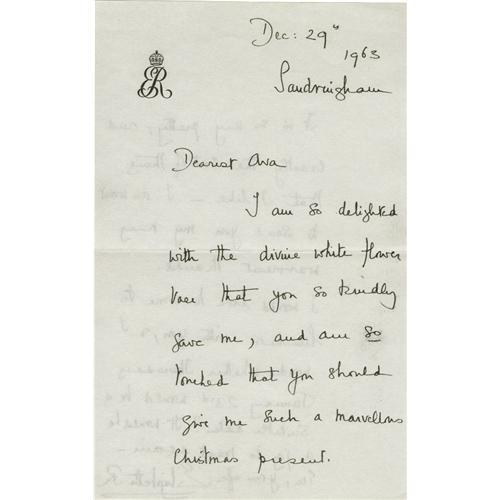 Dec: 29th
1963
ER
Sandringham
Dearest Ava
I am so delighted
with the divine white flower
vase that you so kindly
gave me, and am so
touched that you should
give me such a marvellous
Christmas present.